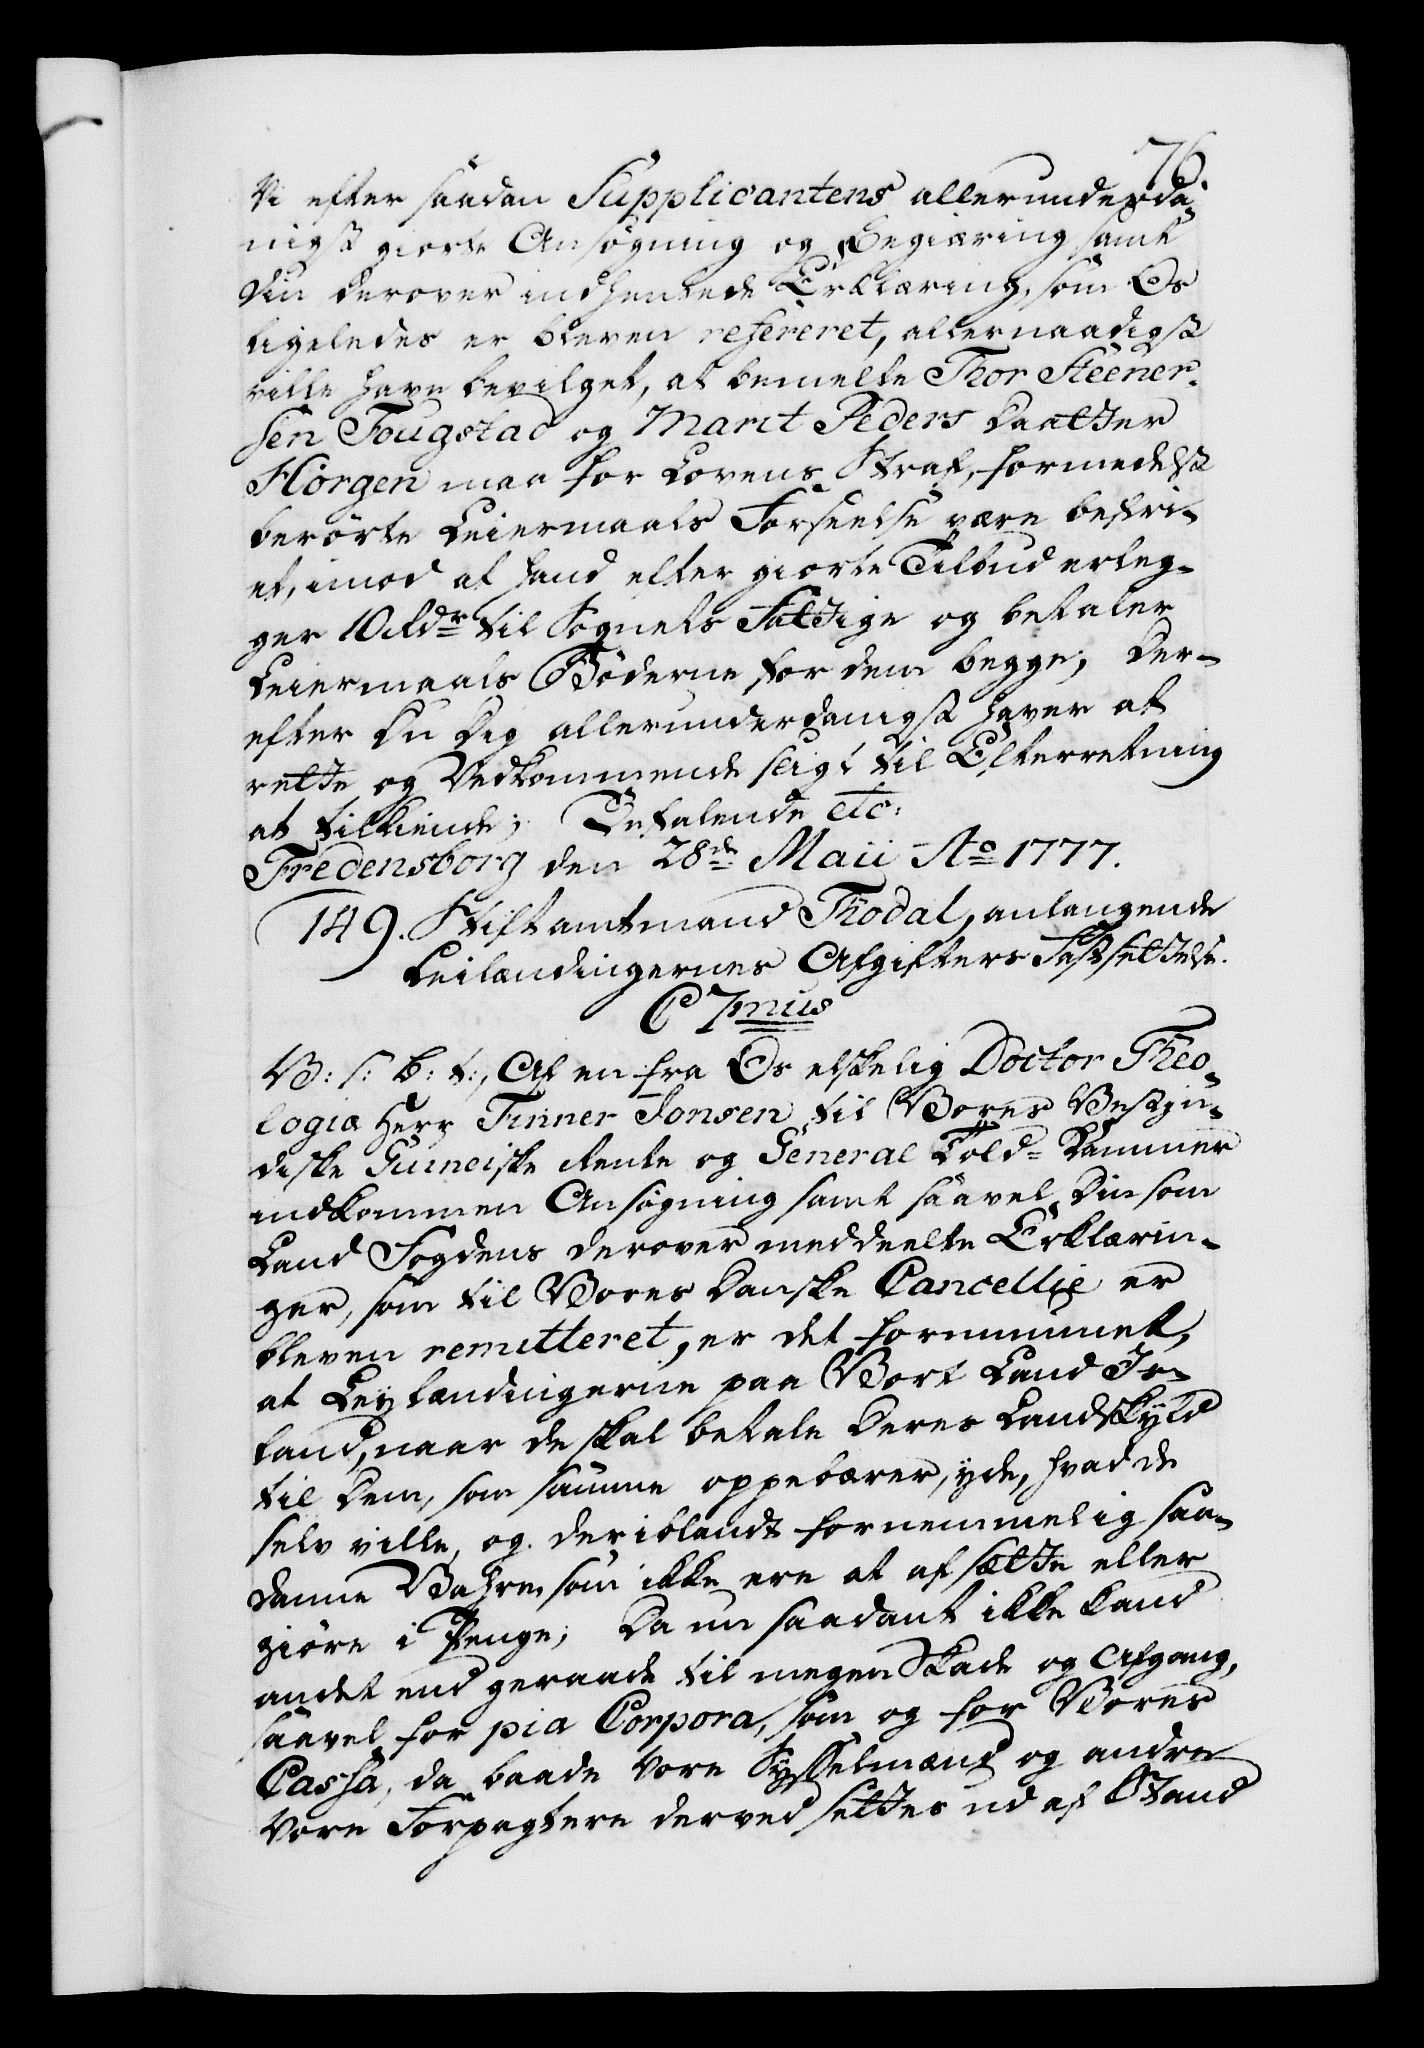 76.
Vi efter saadan Supplicantens allerunderda-
nigst giorte Ansøgning og Begiæring samt
Din derover indhentede Erklæring, som Os
ligeledes er bleven refereret, allernaadigst
ville have bevilget, at bemelte Thor Steener-
sen Fougstad og Marit Peders Daatter
Horgen maa for Lovens Straf, formedelst
berørte Leiermaals Forseelse være befri-
et, imod at hand efter giorte Tilbud erleg-
ger 10 Rdr til Sognets Fattige og betaler
Leiermaals Bøderne for dem begge; Der-
efter Du Dig allerunderdanigst haver at
rette og Vedkommende sligt til Efterretning
at tilkiende; Befalende etc:
Fredensborg den 28de Maii Ao 1777.
149. Stiftamtmand Thodal, anlangende
Leilændingernes Afgifters Fastsettelse.
C 7mus
V: s: b: t:, Af en fra Os elskelig Doctor Theo-
logiæ Herr Finner Jonsen til Vores Vestin-
diske Guineiske Rente og General Told-Kammer
indkommen Ansøgning samt saavel Din som
Land Fogdens derover meddeelte Erklærin-
ger, som til Vores Danske Cancellie er
bleven remitteret, er det fornummet,
at Leylændingerne paa Vort Land Is-
land, naar de skal betale Deres Landskyld
til Dem, som samme oppebærer, yde, hvad de
selv ville, og deriblandt fornemmelig saa-
danne Vahre, som ikke ere at afsætte eller
giøre i Penge; Da nu saadant ikke kand
andet end geraade til megen Skade og Afgang,
saavel for pia Corpora, som og for Vores
Cassa, da baade Vore Sysselmænd og andre
Vore Forpagtere derved settes ud af Stand